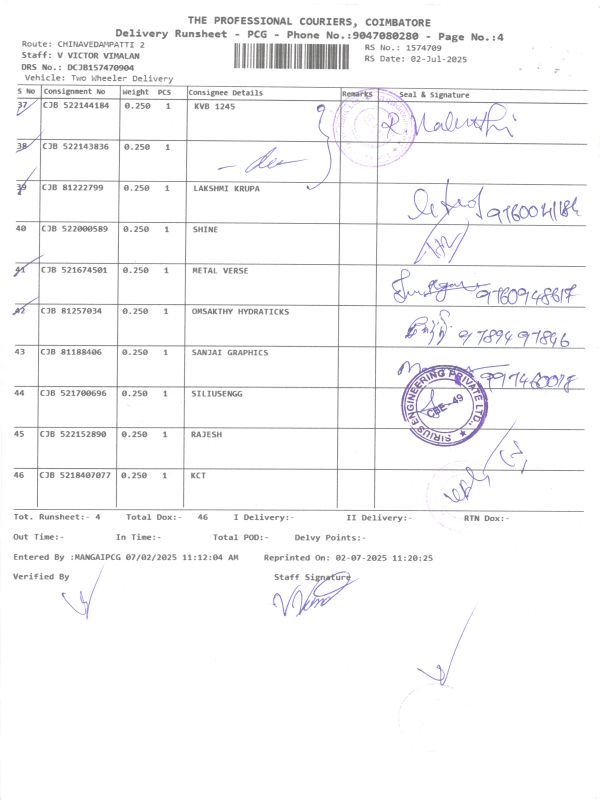 THE PROFESSIONAL COURIERS, COIMBATORE
Delivery Runsheet - PCG - Phone No.:9047080280 - Page No.:4
Route: CHINAVEDAMPATTI 2
RS No.: 1574709
Staff: V VICTOR VIMALAN
RS Date: 02-Jul-2025
DRS No.: DCJB157470904
Vehicle: Two Wheeler Delivery
S No Consignment No Weight PCS Consignee Details Remarks Seal & Signature
37 CJB 522144184 0.250 1 KVB 1245
38 CJB 522143836 0.250 1
39 CJB 81222799 0.250 1 LAKSHMI KRUPA
9160041184
40 CJB 522000589 0.250 1 SHINE
41 CJB 521674501 0.250 1 METAL VERSE
9760948617
42 CJB 81257034 0.250 1 OMSAKTHY HYDRATICKS
9789497846
43 CJB 81188406 0.250 1 SANJAI GRAPHICS
44 CJB 521700696 0.250 1 SILIUSENGG
SIRIUS ENGINEERING PRIVATE LTD.,
CBE-49
45 CJB 522152890 0.250 1 RAJESH
46 CJB 5218407077 0.250 1 KCT
Tot. Runsheet:- 4 Total Dox:- 46 I Delivery:- II Delivery:- RTN Dox:-
Out Time:- In Time:- Total POD:- Delvy Points:-
Entered By :MANGAIPCG 07/02/2025 11:12:04 AM Reprinted On: 02-07-2025 11:20:25
Verified By Staff Signature